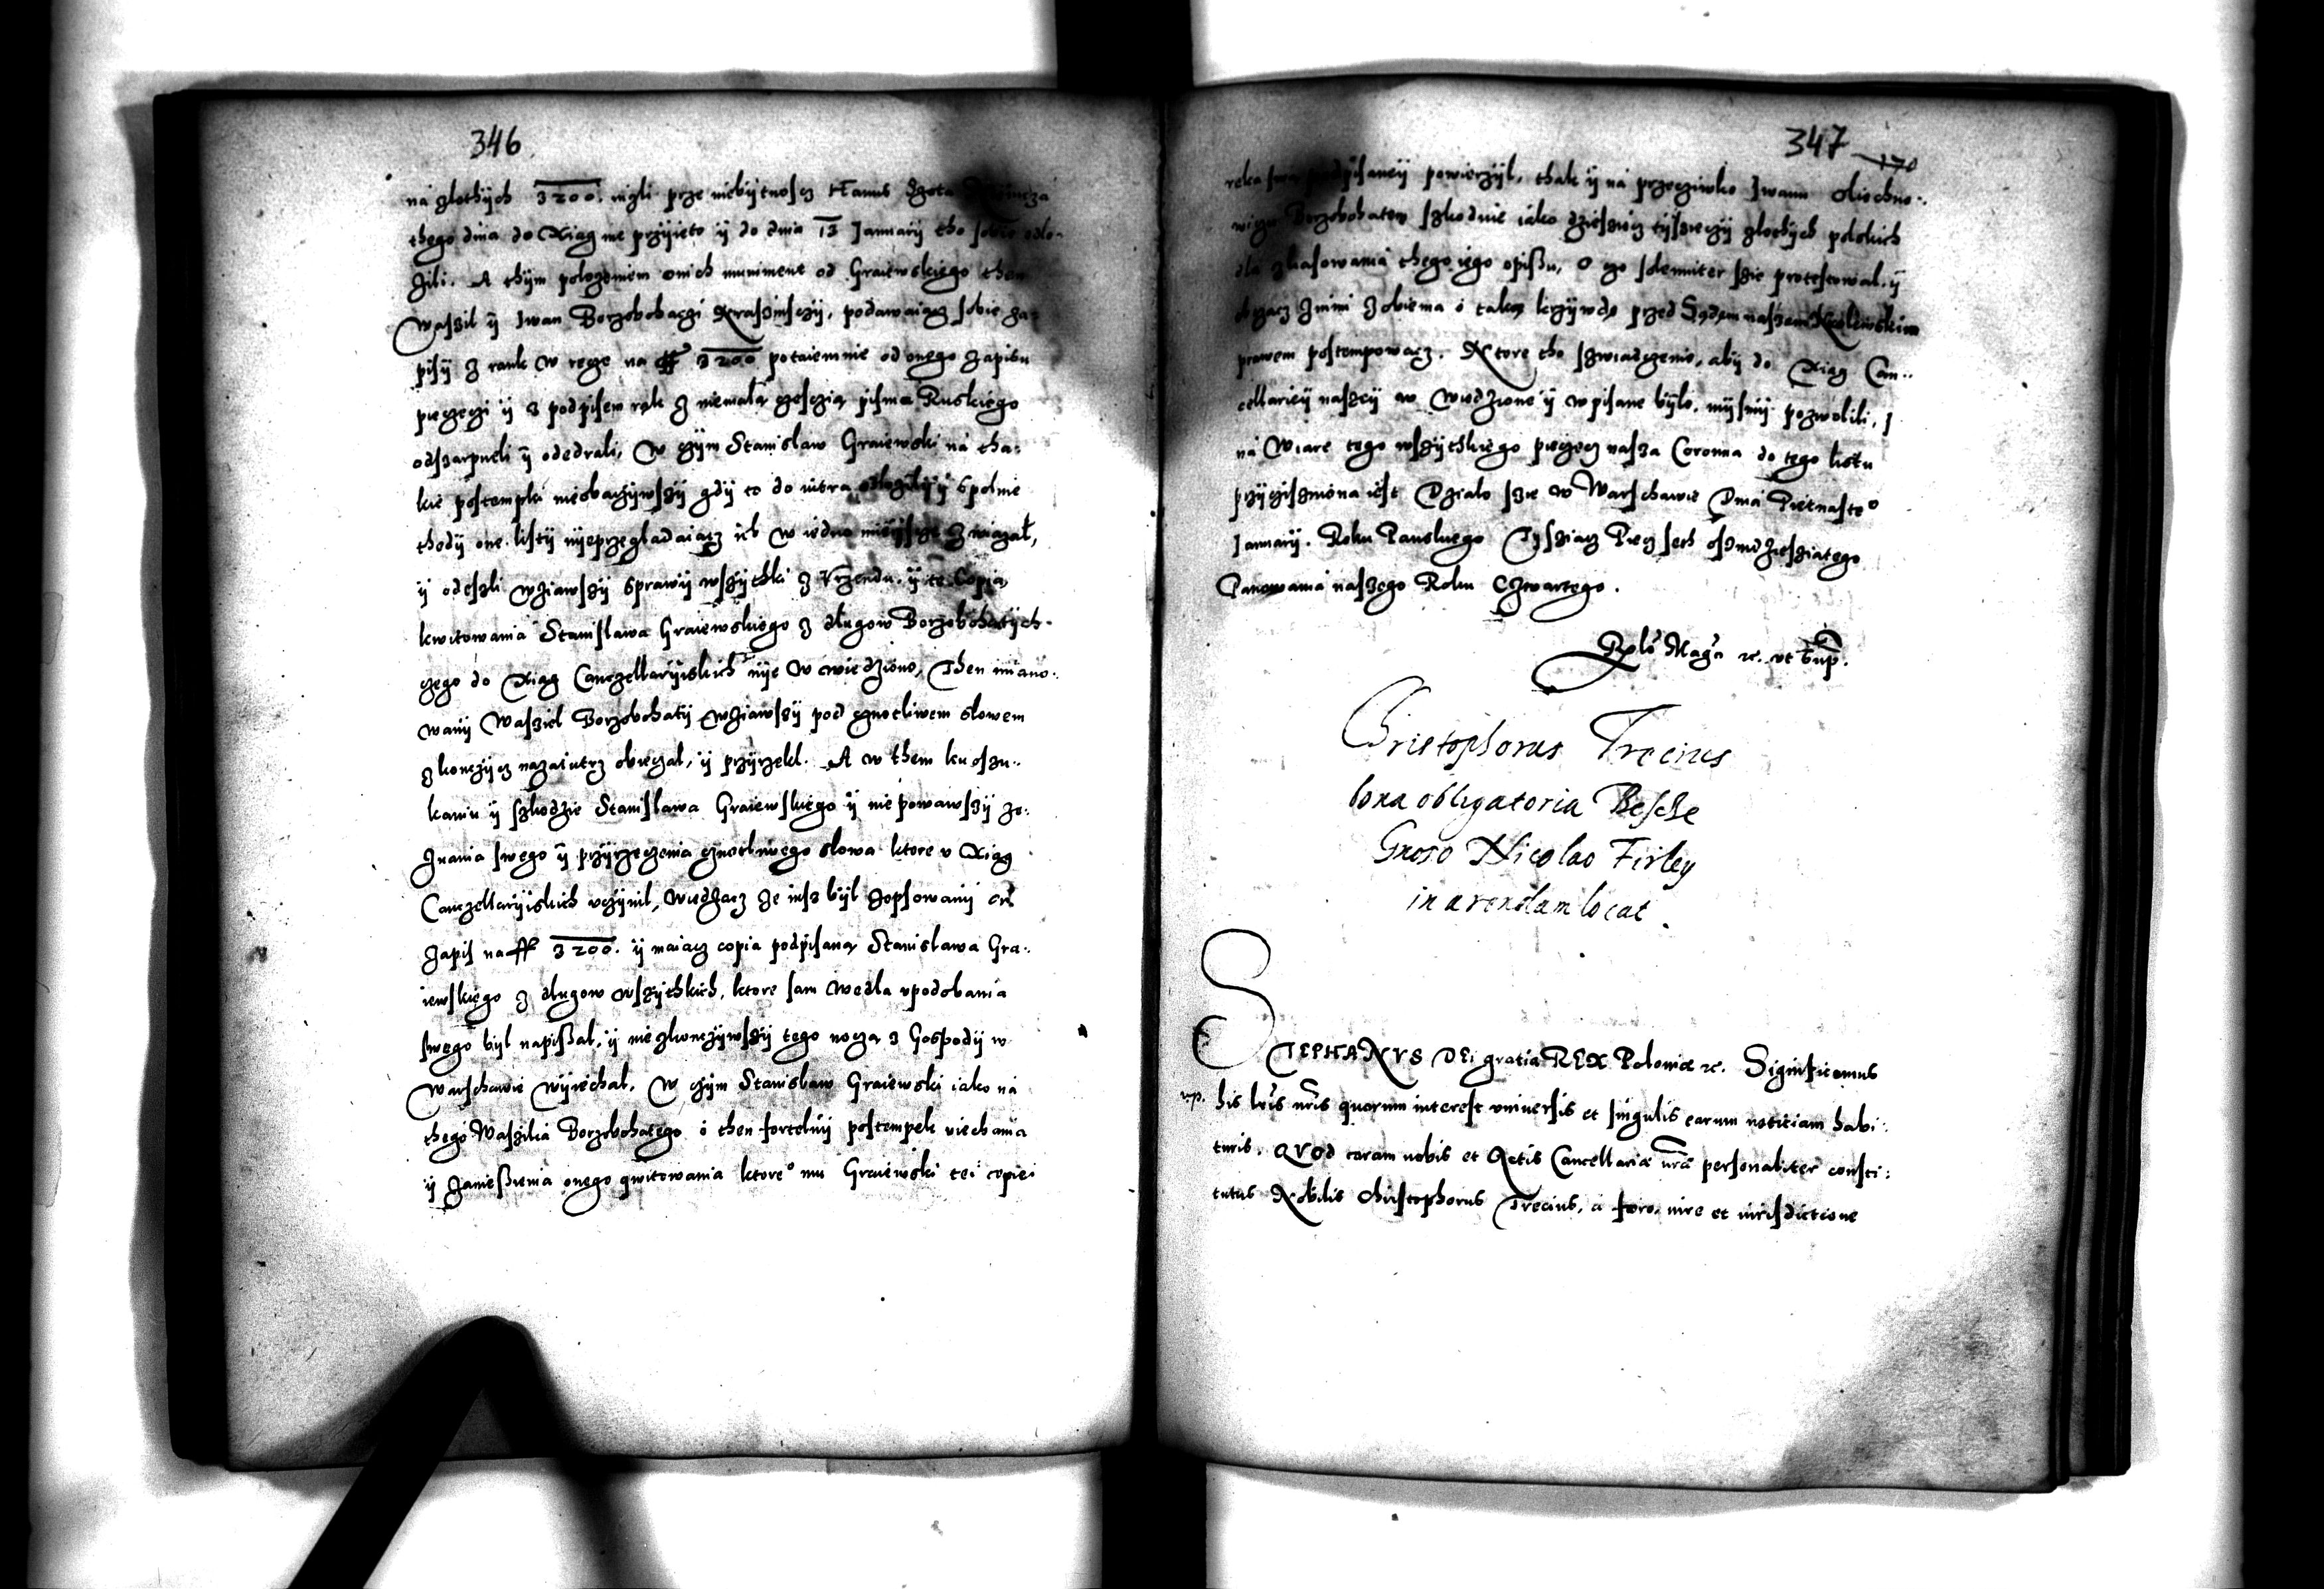 346
na zlothÿch 3200. nizli prze niebÿtnoscz Hanus Szota
thego dnia do Xiag nie przÿieto ÿ do dnia 13 Januarÿ tho sobie odlo-
zili. A thÿm polozeniem onich muniment od Graiewskiego then
Waszil ÿ Iwan Borzobohaczi Kraszinsczÿ, podawaiącz sobie za-
pisÿ z rank w recze na ff 3200 potaiemnie od onego zapisu
pieczęci ÿ s podpisem rąk z niemałą czesczią pisma Ruskiego
odszarpneli ÿ odedrali, W czÿm Stanislaw Graiewski na tha-
kie postempki nieobaczÿwszÿ gdÿ to do iutra odlozili ÿ spolnie
thedÿ one listÿ nÿeprzegladaiącz ich w iedno mieÿsce związał,
ÿ odeszli wziawszÿ sprawÿ wszÿthki z Vrzendu. ÿ te Copia
kwitowania Stanisława Graiewskiego z długow Borzobohatÿch.
czego do Xiag Canczellarÿiskich nÿe w wiedziono, Then miano-
wanÿ Waszil Borzobohatÿ wziawszÿ pod cznotliwem słowem
skonczÿcz nazaiutrz obieczal, ÿ przÿrzekl. A w them ku oszu-
kaniu ÿ szkodzie Stanisława Graiewskiego ÿ niepomawszÿ ze-
znania swego ÿ przÿrzeczenia cznotliwego słowa ktore v Xiąg
Canczellarÿiskich vczÿnil, wiedząc ze iusz bÿl zopsowanÿ on
Zapis na ff 3200. ÿ maiacz copia podpisaną Stanislawa Gra-
iewskiego z długow wszÿthkich, ktore sam wedla vpodobania
swego bÿl napissal, ÿ nieskonczÿwszÿ tego noczą z Gospodÿ w
Warschawie wÿiechal. W czÿm Stanislaw Graiewski iako na
thego Waszilia Borzobohatego o then fortelnÿ postempek viechania
ÿ zaniessienia onego qwitowania ktore° mu Graiewski tei copiei
347
170
reka swa podpisaneÿ powierzÿl, thak ÿ na przeciwko Iwanu Olechno-
wiczu Borzobohatem szkodnie iako dziesięcz tÿsięczÿ zlothÿch polskich
dla skasowania thego iego opissu, o czo solenniter szie protestowal. ÿ
chczącz znimi zobiema o taką krzÿwdę przed Sądem naszem Krolewskim
prawem postempowacz. Ktore tho szwiadczenie, abÿ do Xiąg Can-
cellarieÿ naszeÿ w wiedzione ÿ wpisane bÿlo, mÿsmÿ pozwolili, I
na wiare tego wszÿthkiego pieczęcz nasza Coronna do tego listu
przÿcisniona iest Dzialo szie w Warschawie Dnia Pietnaste°
Januarÿ. Roku Panskiego Tÿsziącz Pięcz seth osmdziesziątego
Panowania naszego Roku Czwartego.
Rela Maga rc. vt supra.
Christophorus Trecius
bona obligatoria Besche
Groso Nicolao Firley
in arendam locat.
STEPHANVS DEi gratia REX Poloniæ rc. Significamus
his lris nris quorum interest vniuersis et singulis earum noticiam habi-
turis. QVOd coram nobis et Actis Cancellariæ nræ personaliter consti:
tutus Nobilis Christophorus Trecius, a foro, iure et iurisdictione